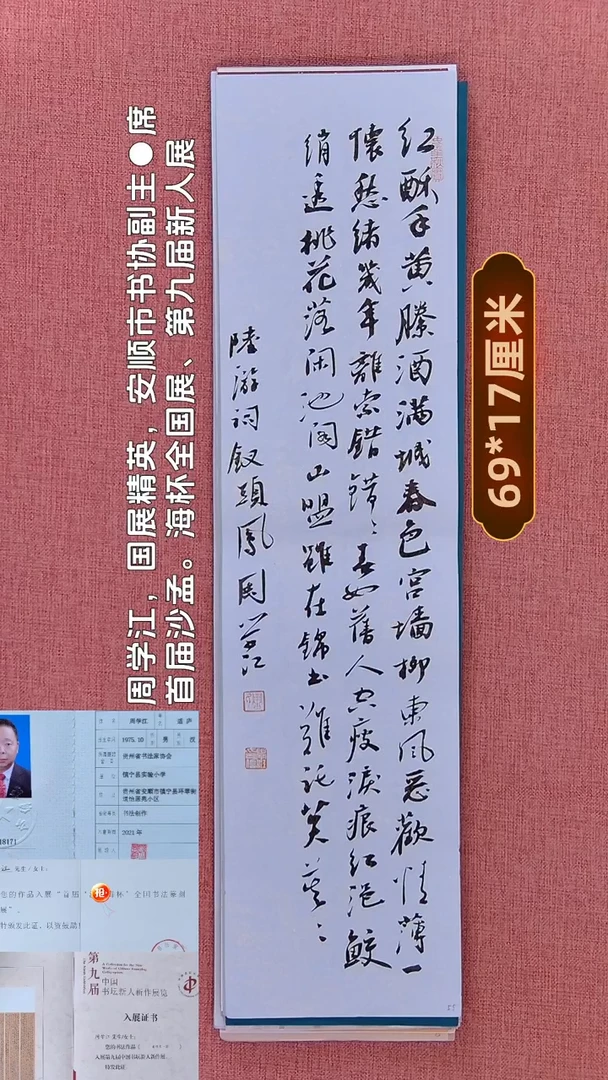 红酥手黄縢酒满城春色宫墙柳东风恶欢情薄一
怀愁绪几年离索错错〻春如旧人空瘦泪痕红浥鲛
绡透桃花落闲池阁山盟虽在锦书难托莫莫〻
陸游词钗頭鳳周学江
69*17厘米
周学江，国展精英，安顺市书协副主●席
首届沙孟。海杯全国展、第九届新人展
周学江
1975.10
贵州省书法家协会
镇宁县实验小学
书法创作
2021年
18171
先生/女士：
抢
第九届
中国
书坛新人新作展览
入展证书